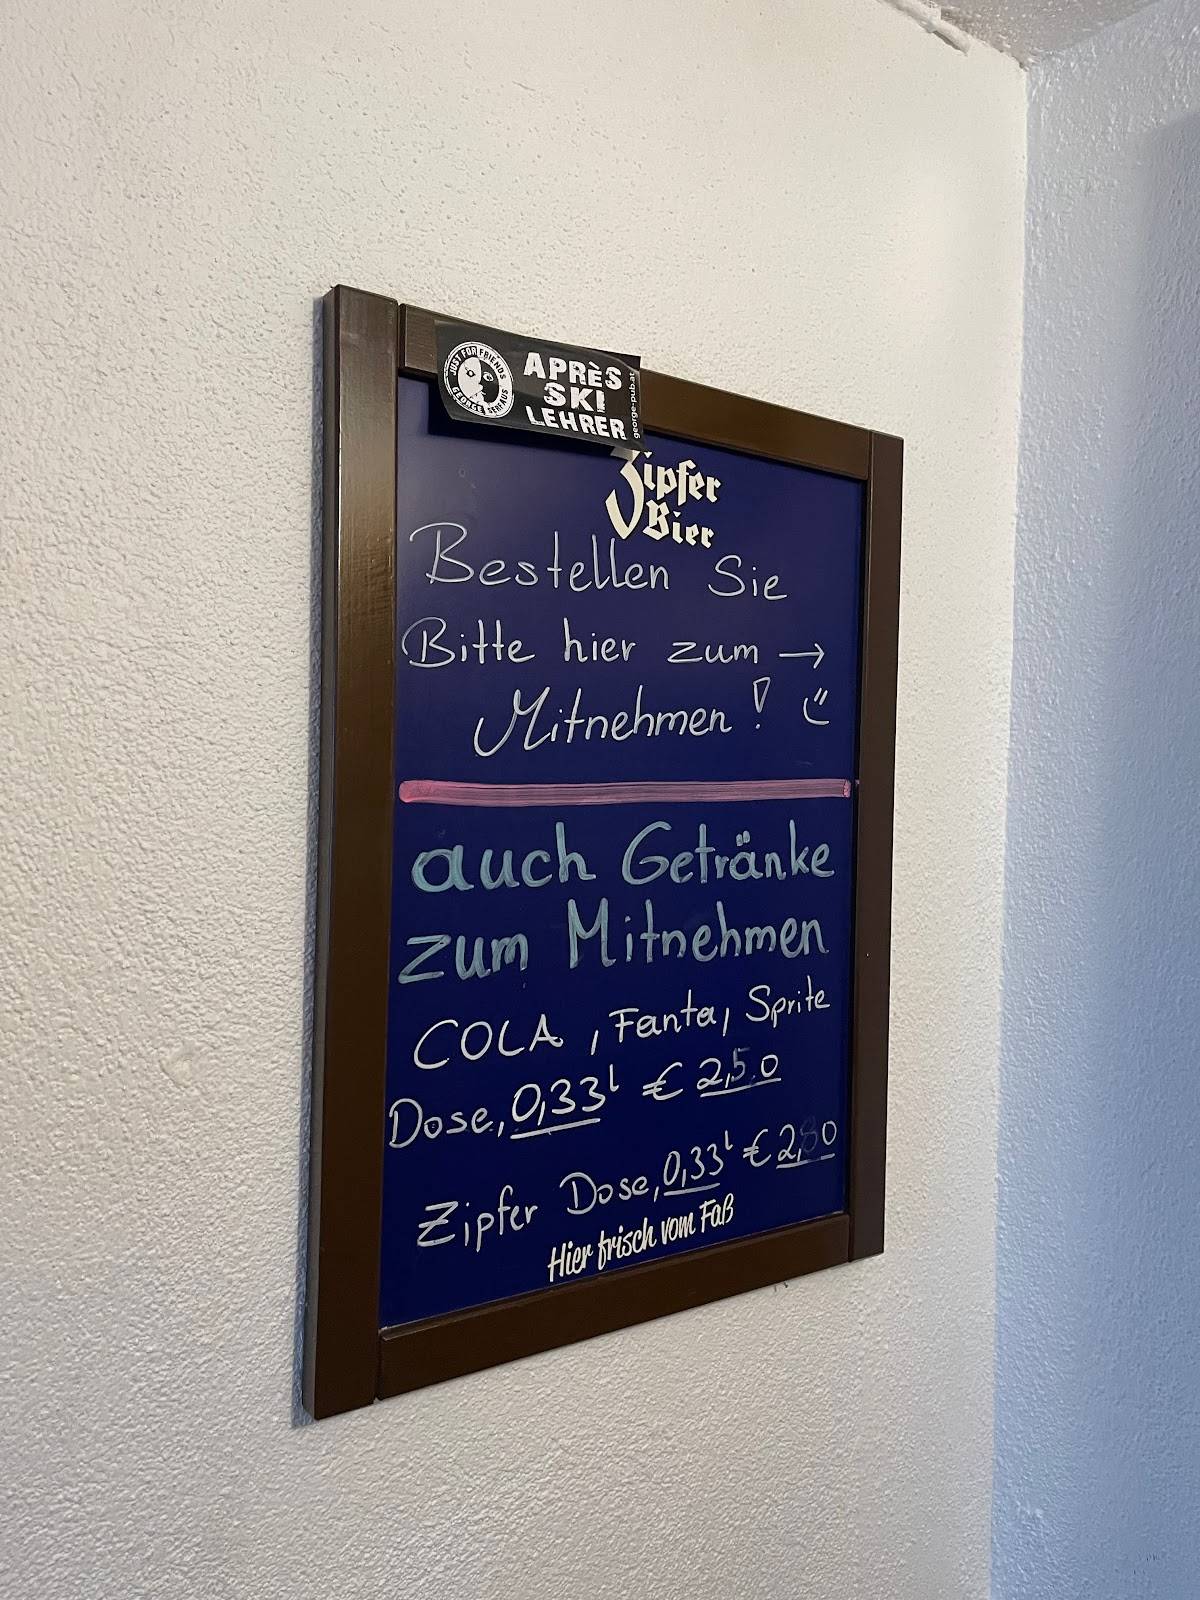 JUST FOR FRIENDS
GEORGE SERFAUS
APRÈS
SKI
LEHRER
george-pub.at
Zipfer
Bier
Bestellen Sie
Bitte hier zum →
Mitnehmen!
auch Getränke
zum Mitnehmen
COLA, Fanta, Sprite
Dose, 0,33l € 2,50
Zipfer Dose, 0,33l € 2,80
Hier frisch vom Faß